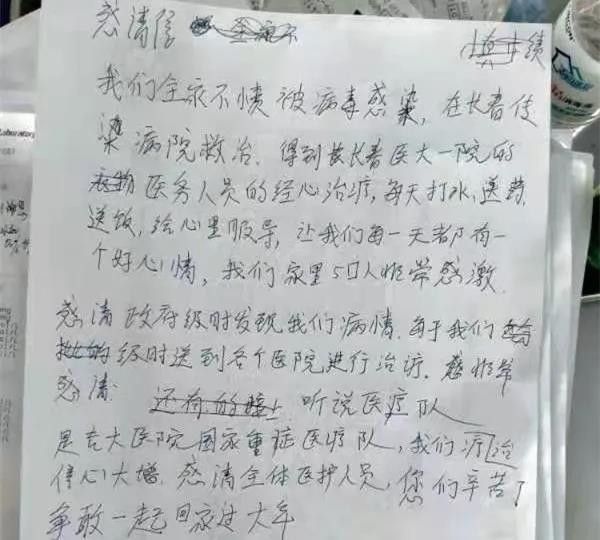 感清信
填成绩
我们全家不慎被病毒感染,在长春传
染病院救治.得到长春医大一院的
医务人员的经心治疗,每天打水,送药,
送饭,给心里服导,让我们每一天都有一
个好心情,我们家里5口人非常感激.
感清政府级时发现我们病情.每于我们
级时送到各个医院进行治疗.非常
感清. 还有的 听说医疗队
是吉大医院国家重症医疗队,我们疗治
信心大增.感清全体医护人员,您们辛苦了
争取一起回家过大年
Laboratory